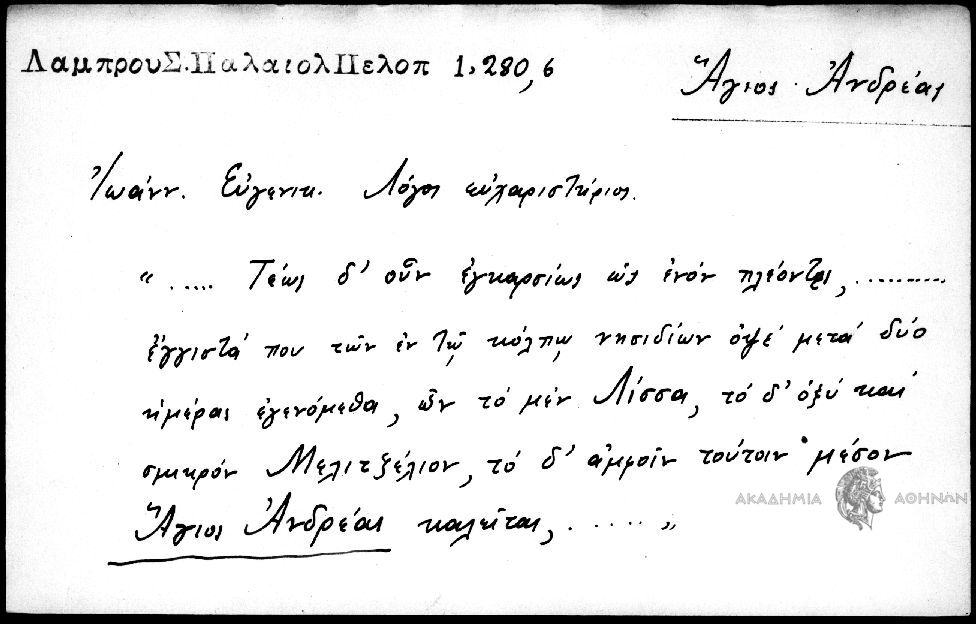 ΛαμπρουΣ.ΠαλαιολΠελοπ 1,280,6
Ἅγιος Ἀνδρέας
Ἰωάνν. Εὐγενικ. Λόγος εὐχαριστήριος.
"..... Τέως δ' οὖν ἐγκαρσίως ὡς ἐνόν πλέοντες, ..........
ἔγγιστά που τῶν ἐν τῷ κόλπῳ νησιδίων ὀψέ μετά δύο
ἡμέρας ἐγενόμεθα, ὧν τό μέν Λίσσα, τό δ' ὀξύ καί
σμικρόν Μελιτζέλιον, τό δ' ἀμφοῖν τούτοιν μέσον
Ἅγιος Ἀνδρέας καλεῖται, ......"
ΑΚΑΔΗΜΙΑ ΑΘΗΝΩΝ